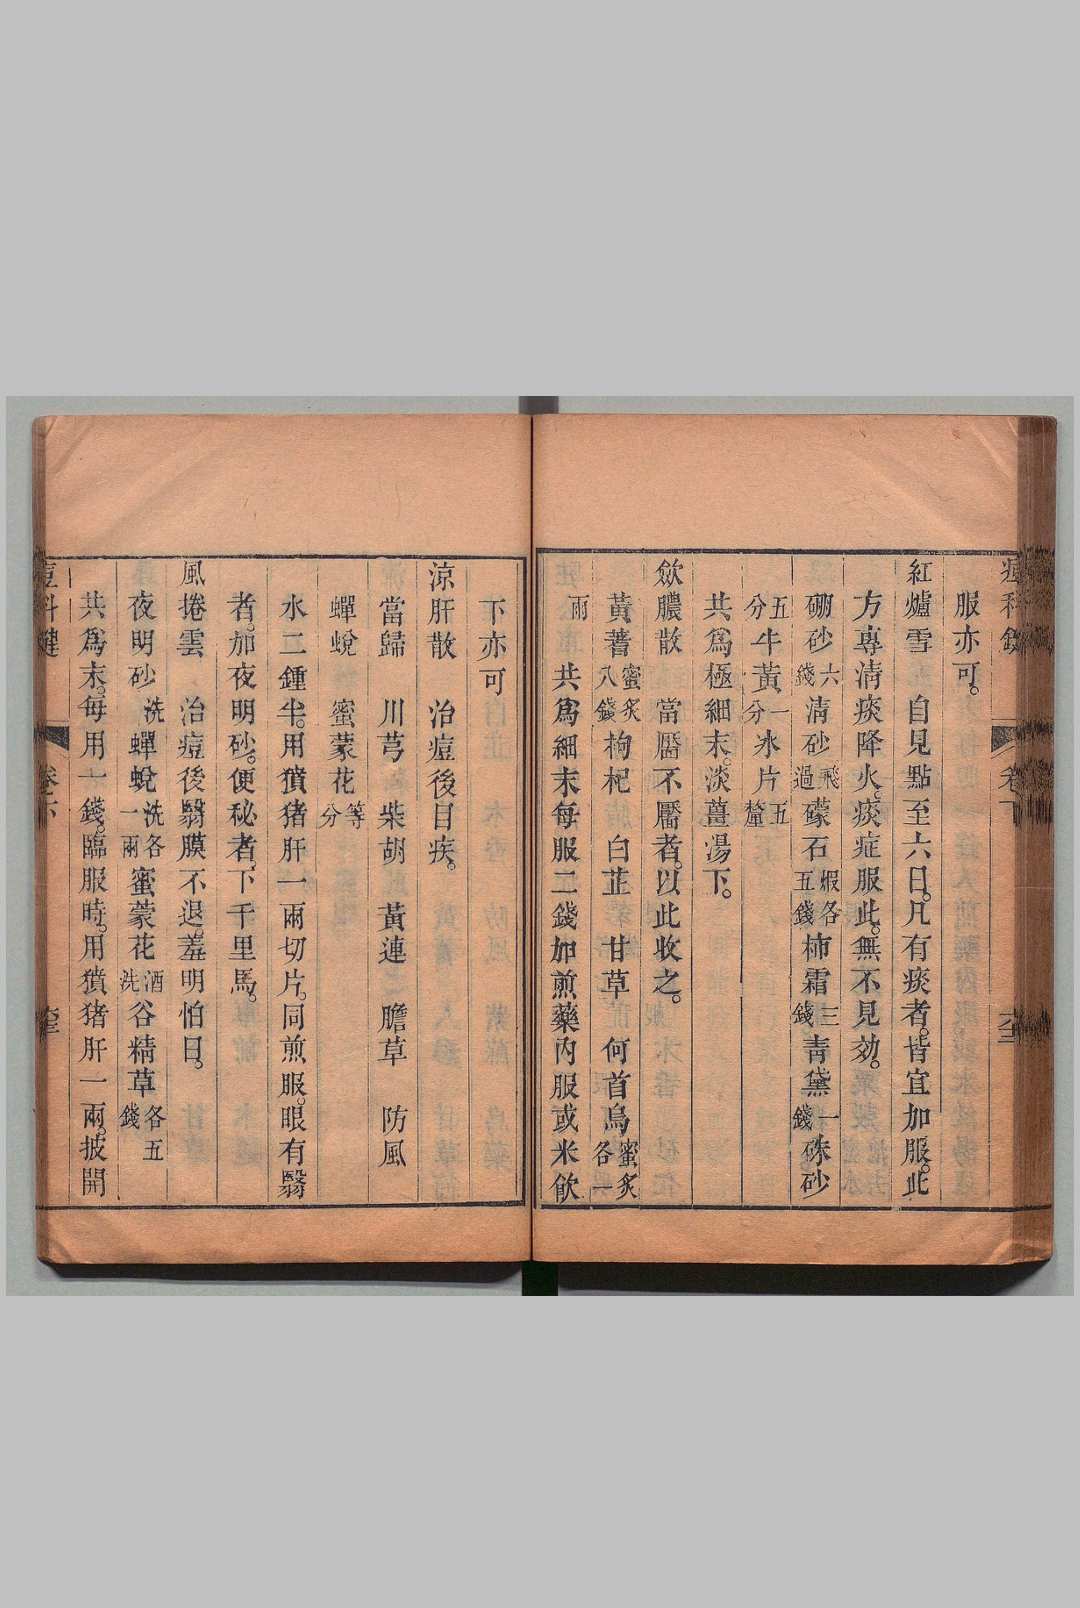 服亦可。
紅爐雪　自見點至六日。凡有痰者。皆宜加服。此
方專清痰降火。痰症服此。無不見効。
硼砂六錢　清砂飛過　礞石煆各五錢　柿霜三錢　靑黛一錢　硃砂
五分　牛黃一分　氷片五釐
共爲極細末。淡薑湯下。
斂膿散　當靨不靨者。以此收之。
黃蓍蜜炙八錢　枸杞　白芷　甘草　何首烏蜜炙各一
兩　共爲細末每服二錢加煎藥內服或米飮
下亦可
涼肝散　治痘後目疾。
當歸　川芎　柴胡　黃連　膽草　防風
蟬蛻　蜜蒙花等分
水二鍾半。用獖猪肝一兩切片。同煎服。眼有翳
者。加夜明砂。便秘者、下千里馬。
風捲雲　治痘後翳膜不退。羞明怕日。
夜明砂洗　蟬蛻洗各一兩　蜜蒙花酒洗　谷精草各五錢
共爲末。每用一錢。臨服時。用獖猪肝一兩。披開